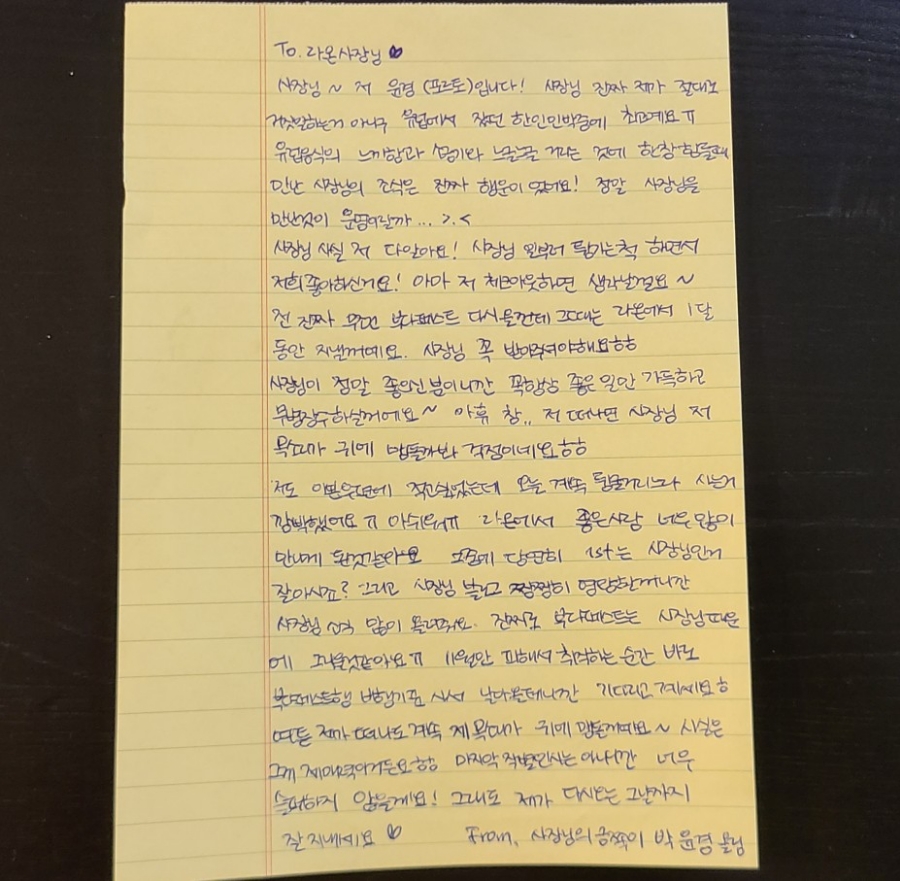 To. 라온사장님 ♥
사장님 ~ 저 윤경 (포르토)입니다! 사장님 진짜 제가 절대로
거짓말하는거 아니구 유럽에서 갔던 한인민박중에 최고예요ㅠ
유럽음식의 느끼함과 질려 것에 한창 힘들때
만난 사장님의 조식은 진짜 행운이였어요! 정말 사장님을
만난것이 운명이랄까... >.<
사장님 사실 저 다알아요! 사장님 일부러 튕기는척 하면서
저희 좋아하신거요! 아마 저 체크아웃하면 생각날걸요 ~
전 진짜 부다페스트 다시올껀데 그때는 라온에서 1달
동안 지낼꺼예요. 사장님 꼭 받아주셔야해요ㅎㅎ
사장님이 정말 좋으신분이니깐 꼭항상 좋은 일만 가득하고
무병장수하실꺼에요~ 아휴 참,, 저 떠나면 사장님 저
목소리가 귀에 맴돌까봐 걱정이네요ㅎㅎ
저도 싶었는데 오늘 계속 사는거
깜박했어요ㅠ 아쉬워ㅠ 라온에서 좋은사람 너무 많이
만나게 된것같아요 당연히 1st는 사장님인거
잘아시죠? 그리고 사장님 몰고 영랑할꺼니깐
사장님 많이 올려줘요. 진짜로 부다페스트는 사장님때문
에 그리울것같아요ㅠ 11월안 피해서 취직하는 순간 바로
부다페스트행 비행기표 사서 날라올테니깐 기다리고 계세요ㅎ
여튼 제가 떠나도 계속 제 목소리가 귀에 맴돌꺼예요 ~ 사실은
그게 제매력이거든요ㅎㅎ 마지막 작별인사는 아니니깐 너무
슬퍼하지 않을게요! 그래도 제가 다시오는 그날까지
잘 지내세요 ♡ From, 사장님의 금쪽이 박윤경 올림